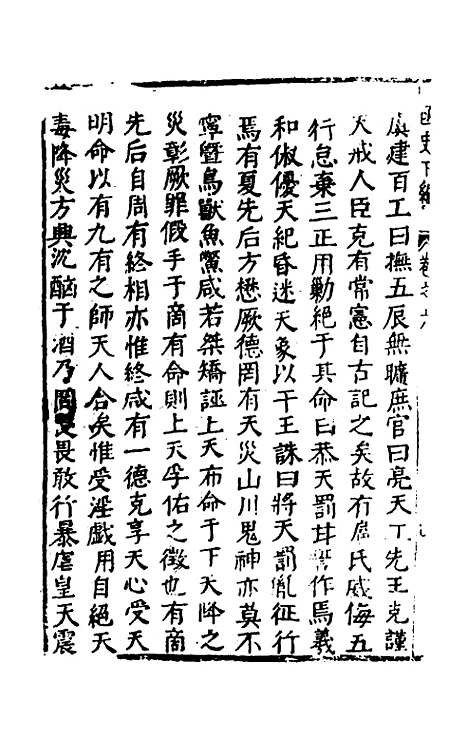 函史下編 卷之六
虞建百工曰撫五辰無曠庶官曰亮天工先王克謹
天戒人臣克有常憲自古記之矣故有扈氏威侮五
行怠棄三正用勦絕于其命曰恭天罰甘誓作焉羲
和俶優天紀昏迷天象以干王誅曰將天罰胤征行
焉有夏先后方懋厥德罔有天災山川鬼神亦莫不
寧暨鳥獸魚鱉咸若桀矯誣上天布命于下天降之
災彰厥罪假手于商有命則上天孚佑之徵也有商
先后自周有終相亦惟終咸有一德克享天心受天
明命以有九有之師天人合矣惟受淫戲用自絕天
毒降災方興沉酗于酒乃罔畏畏敢行暴虐皇天震